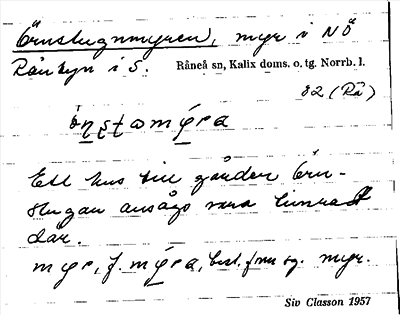 Örnstugnmyren, myr i NÖ
Rånbyn i S. Råneå sn, Kalix doms. o. tg. Norrb. l.
82 (Rå)
Ett hus till gården Örn-
stugan ansågs vara timrat
där.
myr, f. best. f nu sg. myr.
Siv Classon 1957